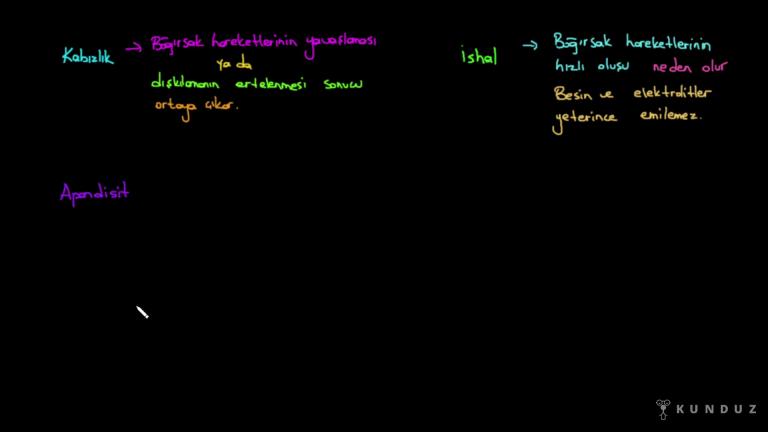 Kabızlık → Bağırsak hareketlerinin yavaşlaması
ya da
dışkılamanın ertelenmesi sonucu
ortaya çıkar.
ishal → Bağırsak hareketlerinin
hızlı oluşu neden olur
Besin ve elektrolitler
yeterince emilemez.
Apandisit
KUNDUZ